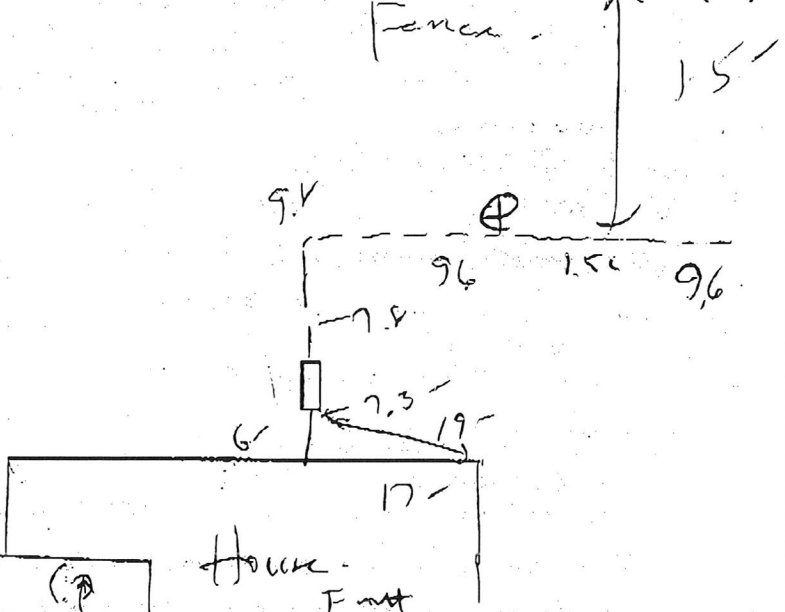 Fence.
15'
9.8
96
1.50
9.6
7.8
7.3'
19'
6'
17'
House.
Front